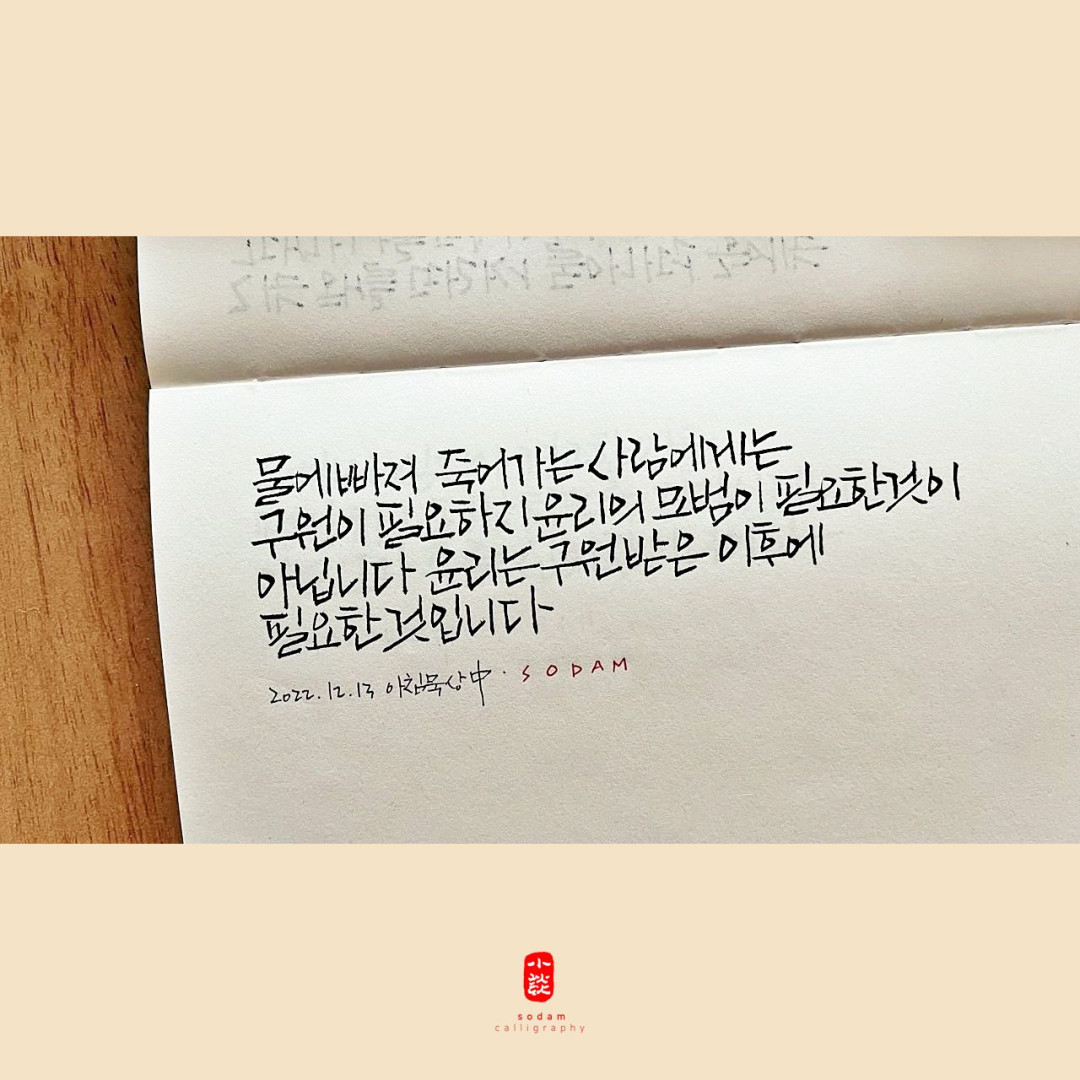 물에빠져 죽어가는 사람에게는
구원이 필요하지 윤리의 모범이 필요한것이
아닙니다 윤리는 구원받은 이후에
필요한것입니다
2022.12.13 아침묵상中 · SODAM
小談
sodam
calligraphy